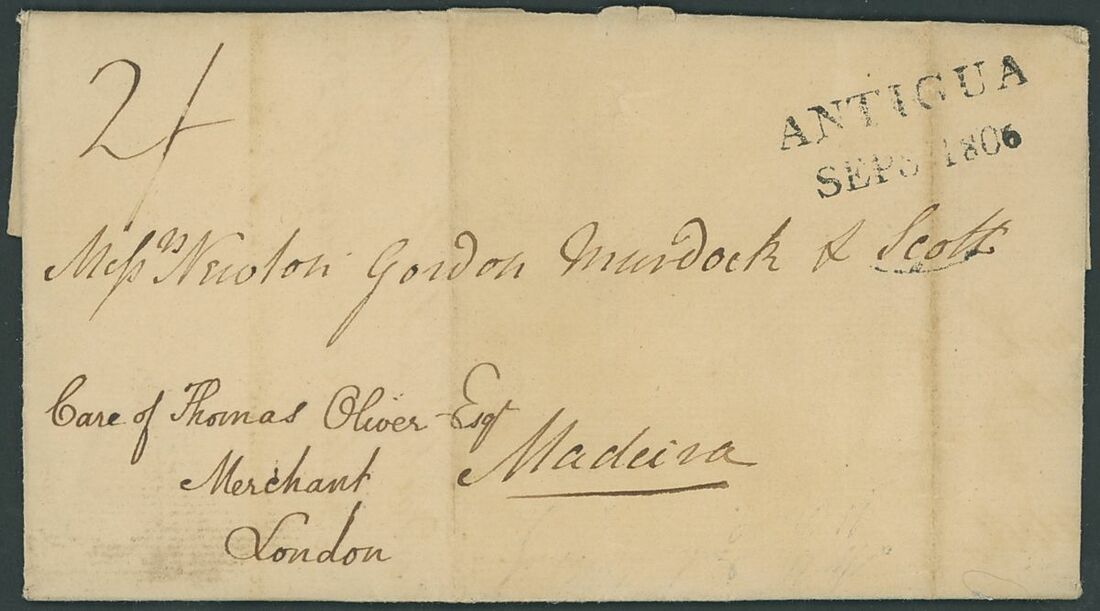 2/
ANTIGUA
SEP5 1806
Messrs Newton Gordon Murdock & Scott
Care of Thomas Oliver Esqr
Madeira
Merchant
London